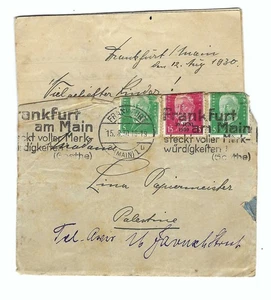 Frankfurt / Main
den 12. Aug 1930.
Vielgeliebte Kinder!
Frankfurt
am Main
steckt voller Merk-
würdigkeiten
(Goethe)
FRANKFURT
(MAIN)
Frankfurt
am Main
steckt voller Merk-
würdigkeiten
(Goethe)
Lina Papiermeister
Palestine
Tel. Aviv